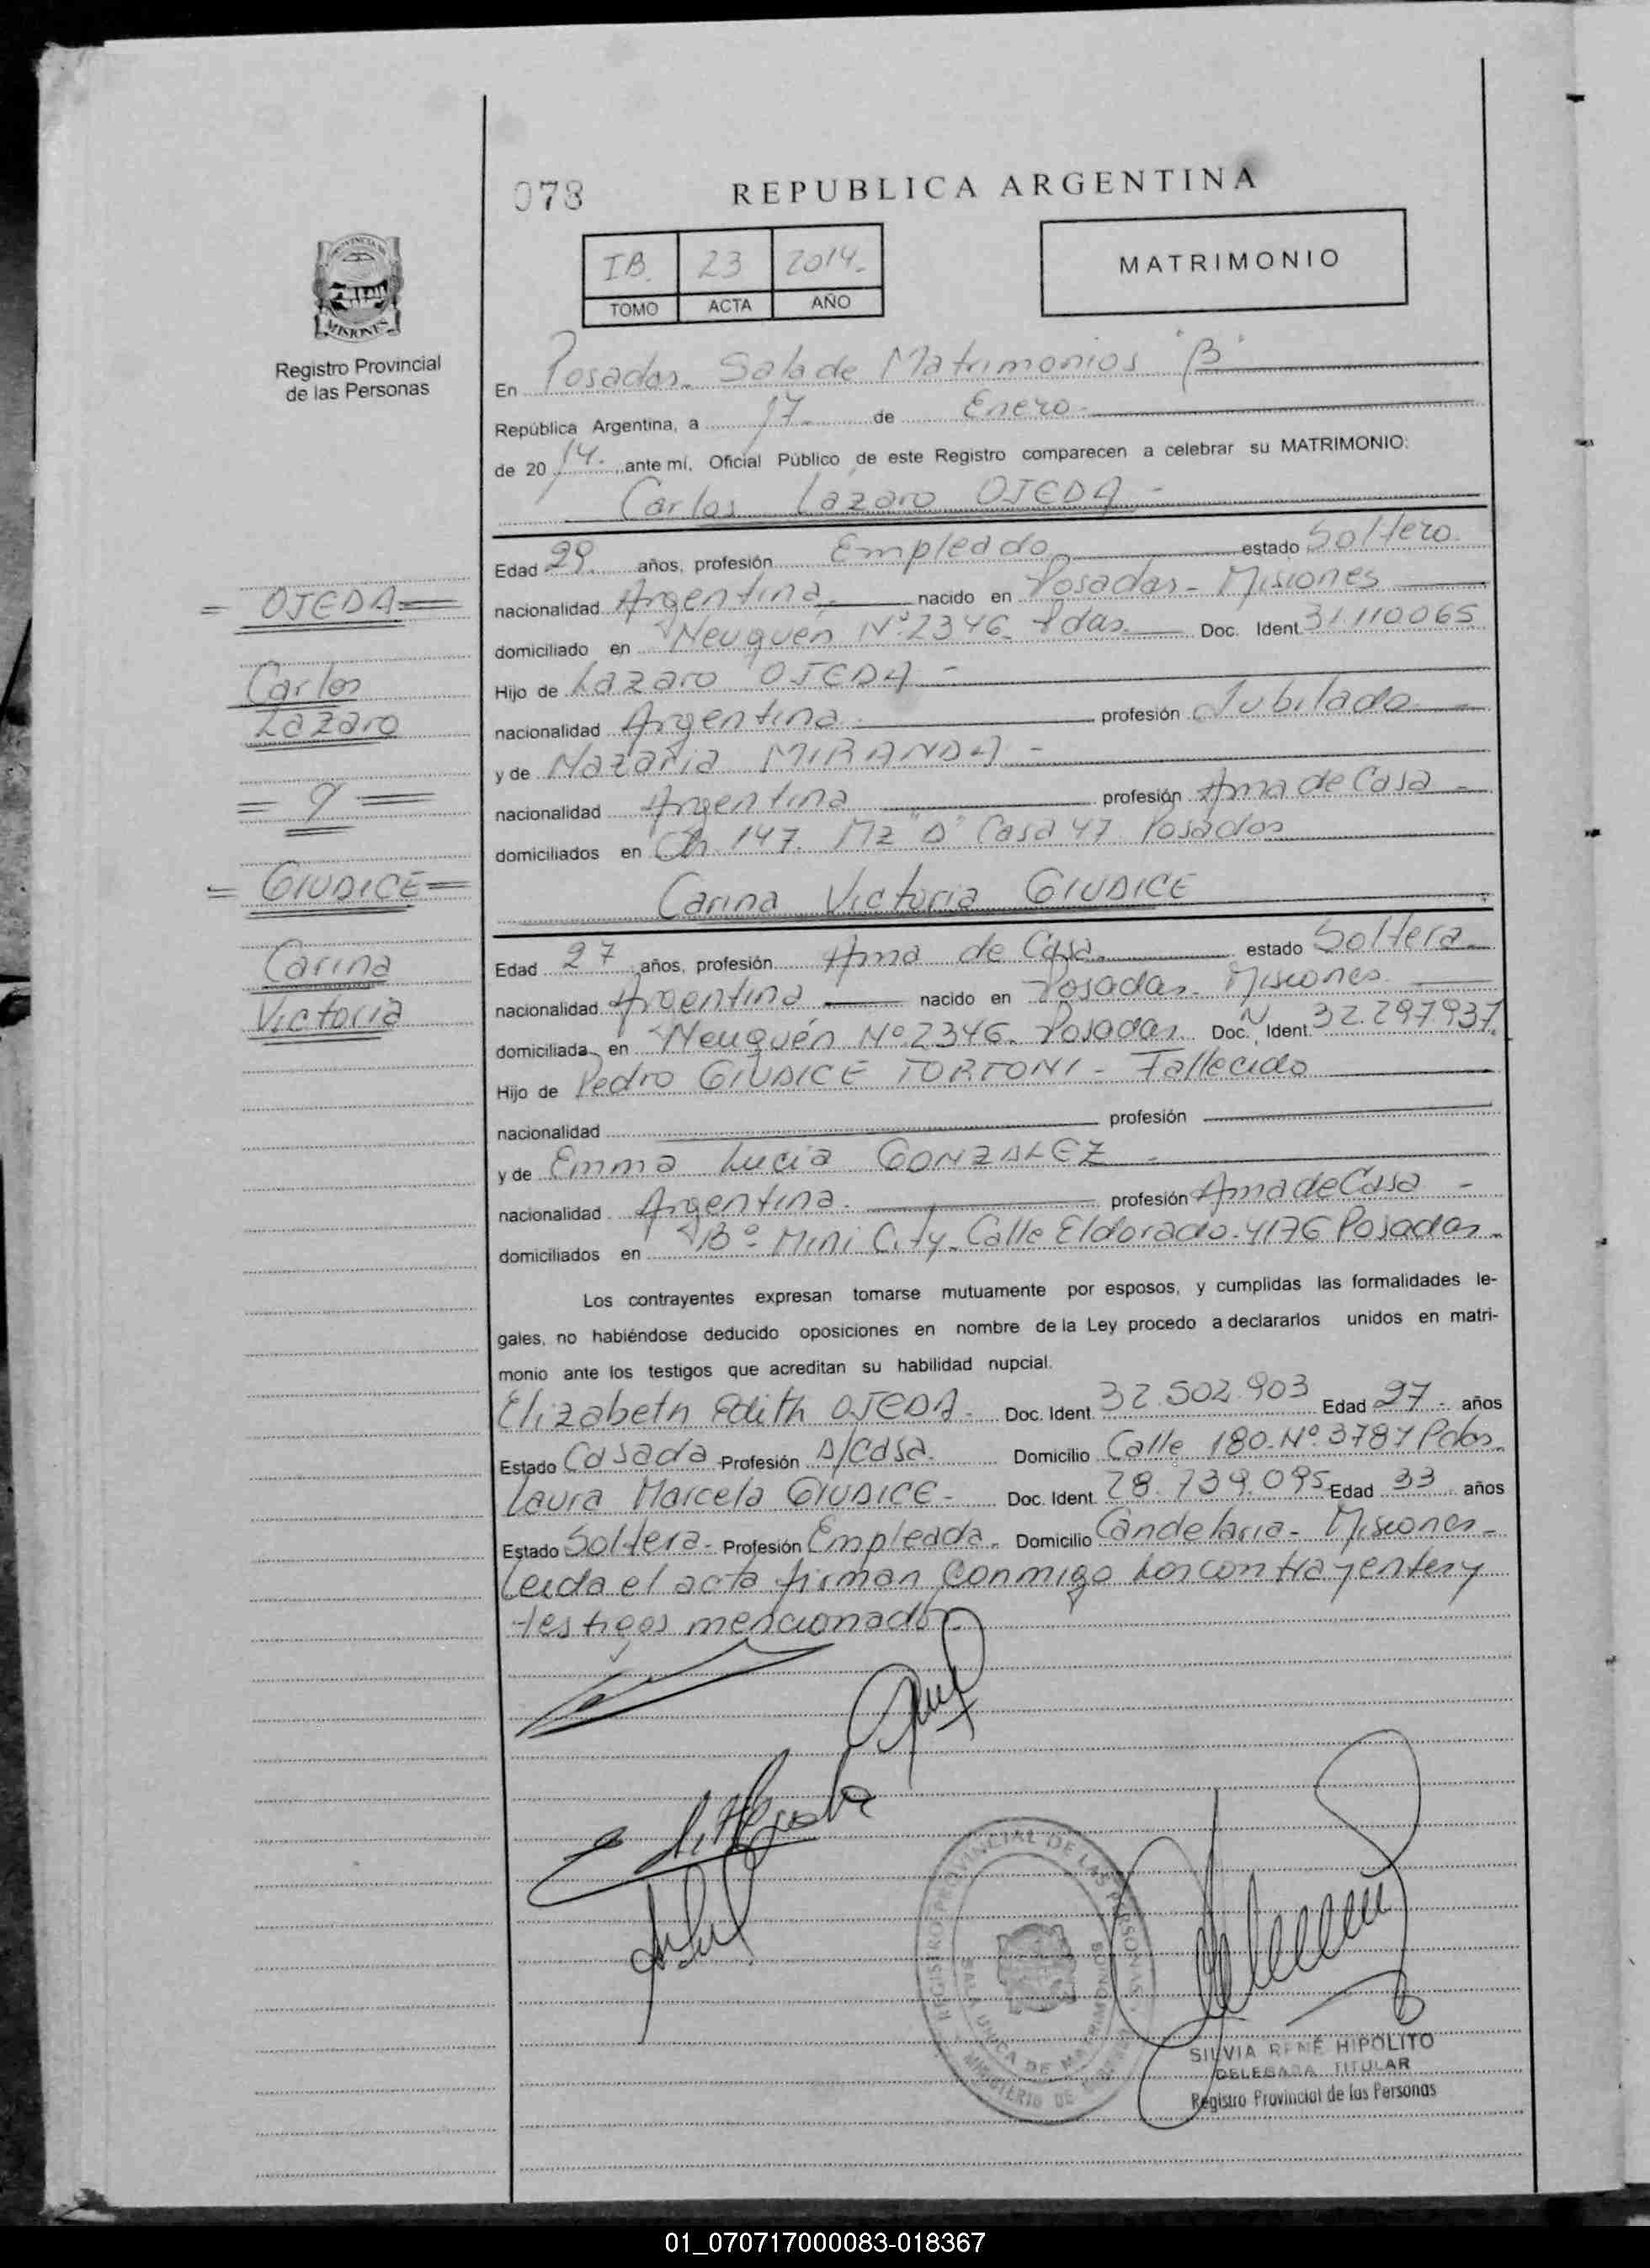 078
REPUBLICA ARGENTINA
PROVINCIA DE
MISIONES
Registro Provincial
de las Personas
IB. 23 2014.
TOMO ACTA AÑO
MATRIMONIO
En Posadas. Sala de Matrimonios "B"
República Argentina, a 17 de Enero.
de 20 14. ante mí, Oficial Público de este Registro comparecen a celebrar su MATRIMONIO:
Carlos Lazaro OJEDA -
Edad 29. años, profesión Empleado estado Soltero.
nacionalidad Argentina nacido en Posadas - Misiones
domiciliado en Neuquén Nº 2346. Pdas. Doc. Ident. 31.110.065
Hijo de Lazaro OJEDA -
nacionalidad Argentina profesión Jubilado -
y de Nazaria MIRANDA -
nacionalidad Argentina profesión Ama de Casa -
domiciliados en Ch. 147. Mz "D" Casa 47 Posadas
= OJEDA =
Carlos
Lazaro
= y =
= GIUDICE =
Carina
Victoria
Carina Victoria GIUDICE
Edad 27 años, profesión Ama de Casa. estado Soltera.
nacionalidad Argentina nacido en Posadas - Misiones
domiciliada en Neuquén Nº 2346. Posadas. Doc. Ident. 32.297937
Hijo de Pedro GIUDICE TORTONI - Fallecido
nacionalidad profesión
y de Emma Lucia GONZALEZ -
nacionalidad Argentina. profesión Ama de Casa -
domiciliados en Bº Mini City. Calle Eldorado. 4176 Posadas.
Los contrayentes expresan tomarse mutuamente por esposos, y cumplidas las formalidades le-
gales, no habiéndose deducido oposiciones en nombre de la Ley procedo a declararlos unidos en matri-
monio ante los testigos que acreditan su habilidad nupcial.
Elizabeth Edith OJEDA. Doc. Ident. 32.502.903 Edad 27. años
Estado Casada Profesión A/Casa. Domicilio Calle 180. Nº 3787 Pdas.
Laura Marcela GIUDICE - Doc. Ident. 28.739.095 Edad 33 años
Estado Soltera - Profesión Empleada. Domicilio Candelaria - Misiones -
Leida el acta firman conmigo los contrayentes y
testigos mencionados.
REGISTRO PROVINCIAL DE LAS PERSONAS
SALA UNICA DE MATRIMONIOS
MINISTERIO DE
SILVIA RENÉ HIPÓLITO
DELEGADA TITULAR
Registro Provincial de las Personas
01_070717000083-018367